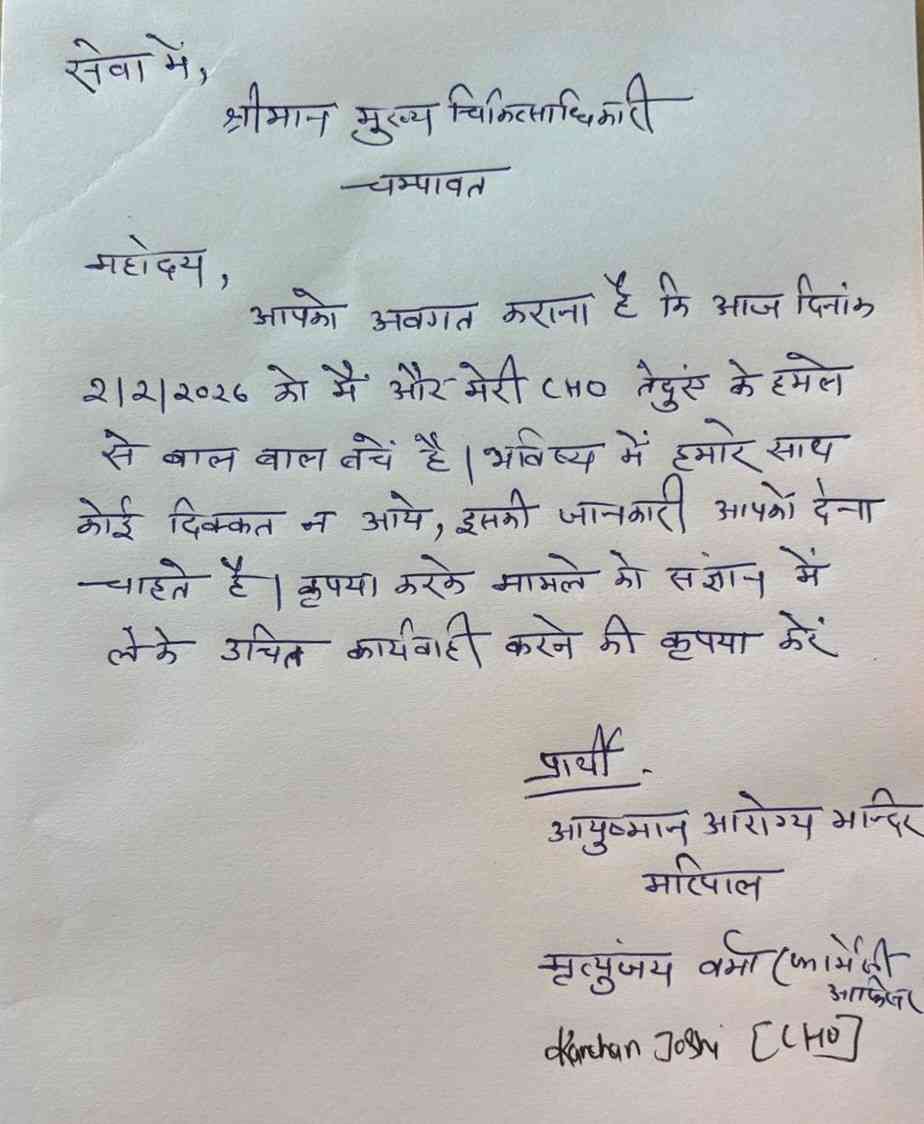 सेवा में,
श्रीमान मुख्य चिकित्साधिकारी
चम्पावत
महोदय,
आपको अवगत कराना है कि आज दिनांक
2/2/2026 को मैं और मेरी CHO तेदुएं के हमले
से बाल बाल बचें है। भविष्य में हमारे साथ
कोई दिक्कत न आये, इसकी जानकारी आपको देना
चाहते है। कृपया करके मामले को संज्ञान में
लेके उचित कार्यवाही करने की कृपया करें
प्रार्थी
आयुष्मान आरोग्य मन्दिर
मृत्युंजय वर्मा (फार्मेसी
आफिसर
Kanchan Joshi [CHO]